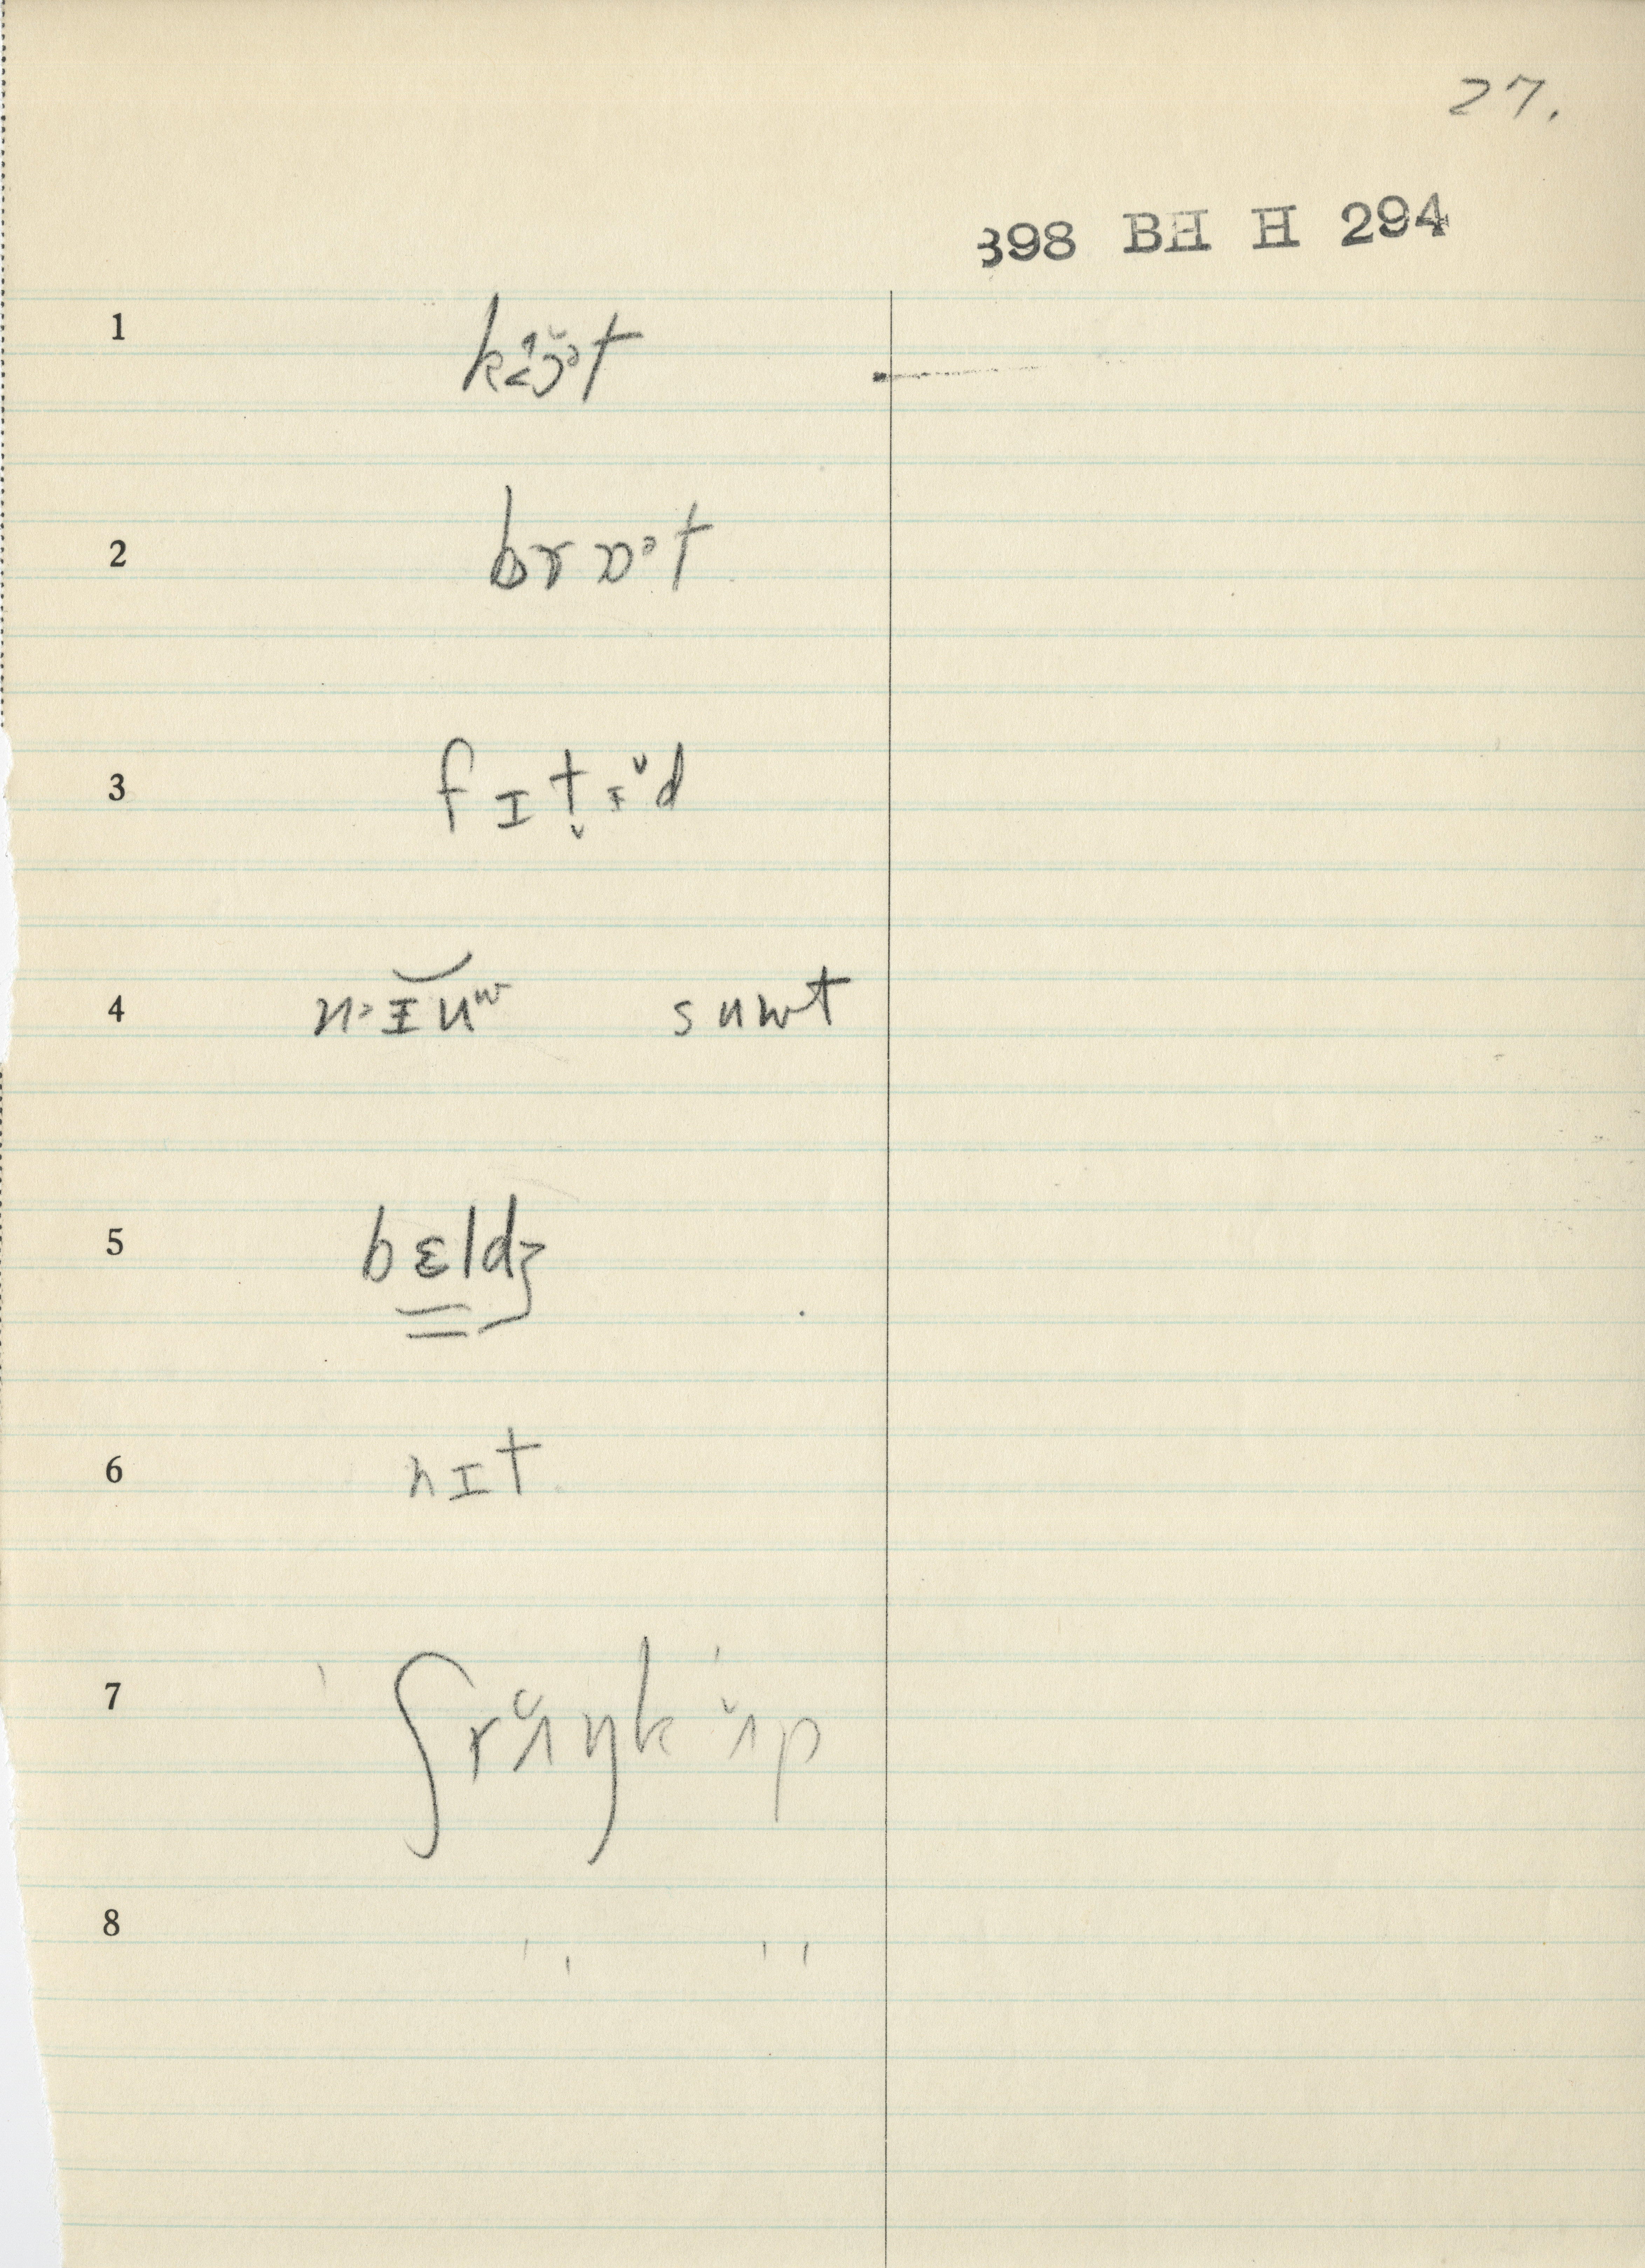 27.
398 BH H 294
1 k<ɔ̆ᵊt
2 brɒᵊt
3 fɪt̬ɪ̆d
4 n>ɪuʷ suwt
5 bɛldʒ
6 nɪt
7 ʃrʌ̆ŋkʌ̆p
8